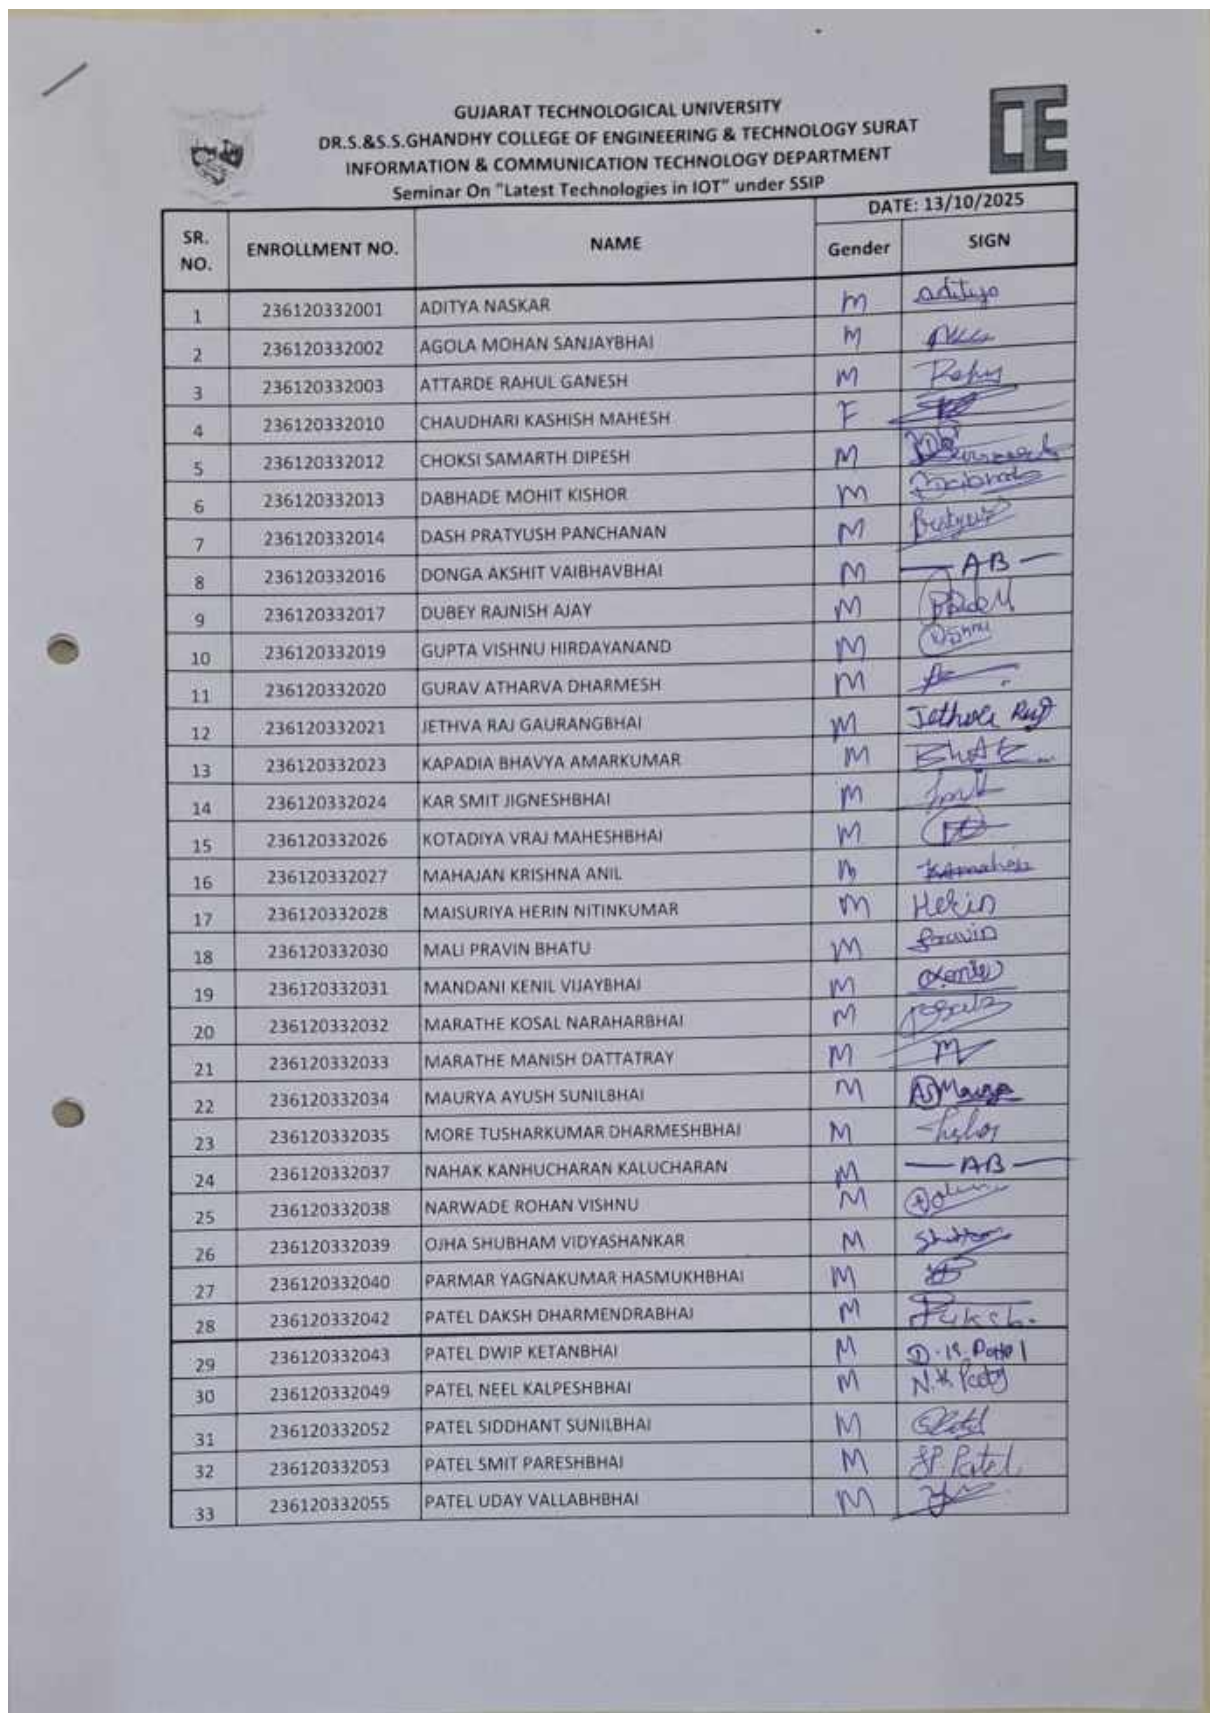 GUJARAT TECHNOLOGICAL UNIVERSITY
DR.S.&S.S.GHANDHY COLLEGE OF ENGINEERING & TECHNOLOGY SURAT
INFORMATION & COMMUNICATION TECHNOLOGY DEPARTMENT
Seminar On "Latest Technologies in IOT" under SSIP
DATE: 13/10/2025
SR. NO. ENROLLMENT NO. NAME Gender SIGN
1 236120332001 ADITYA NASKAR M aditya
2 236120332002 AGOLA MOHAN SANJAYBHAI M
3 236120332003 ATTARDE RAHUL GANESH M
4 236120332010 CHAUDHARI KASHISH MAHESH F
5 236120332012 CHOKSI SAMARTH DIPESH M
6 236120332013 DABHADE MOHIT KISHOR M
7 236120332014 DASH PRATYUSH PANCHANAN M
8 236120332016 DONGA AKSHIT VAIBHAVBHAI M — AB —
9 236120332017 DUBEY RAJNISH AJAY M
10 236120332019 GUPTA VISHNU HIRDAYANAND M
11 236120332020 GURAV ATHARVA DHARMESH M
12 236120332021 JETHVA RAJ GAURANGBHAI M Jethva Raj
13 236120332023 KAPADIA BHAVYA AMARKUMAR M
14 236120332024 KAR SMIT JIGNESHBHAI M
15 236120332026 KOTADIYA VRAJ MAHESHBHAI M
16 236120332027 MAHAJAN KRISHNA ANIL M
17 236120332028 MAISURIYA HERIN NITINKUMAR M Herin
18 236120332030 MALI PRAVIN BHATU M Pravin
19 236120332031 MANDANI KENIL VIJAYBHAI M
20 236120332032 MARATHE KOSAL NARAHARBHAI M
21 236120332033 MARATHE MANISH DATTATRAY M M
22 236120332034 MAURYA AYUSH SUNILBHAI M
23 236120332035 MORE TUSHARKUMAR DHARMESHBHAI M
24 236120332037 NAHAK KANHUCHARAN KALUCHARAN M — AB —
25 236120332038 NARWADE ROHAN VISHNU M
26 236120332039 OJHA SHUBHAM VIDYASHANKAR M
27 236120332040 PARMAR YAGNAKUMAR HASMUKHBHAI M
28 236120332042 PATEL DAKSH DHARMENDRABHAI M
29 236120332043 PATEL DWIP KETANBHAI M D.K.Patel
30 236120332049 PATEL NEEL KALPESHBHAI M
31 236120332052 PATEL SIDDHANT SUNILBHAI M
32 236120332053 PATEL SMIT PARESHBHAI M SP Patel
33 236120332055 PATEL UDAY VALLABHBHAI M